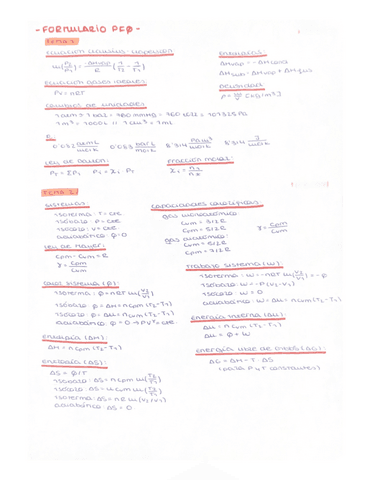 - FORMULARIO PFQ -
TEMA 1
ECUACIÓN CLAUSIUS-CLAPEYRON
ln(P2/P1) = -ΔHvap/R (1/T2 - 1/T1)
ECUACIÓN GASES IDEALES
PV = nRT
CAMBIOS DE UNIDADES
R:
0'082 atmL/molK 0'083 barL/molK 8'314 Pa m³/molK 8'314 J/molK
LEY DE DALTON:
PT = ΣPi Pi = Xi · PT
ENTALPÍAS:
ΔHsub = ΔHvap + ΔHfus
DENSIDAD:
FRACCIÓN MOLAR:
TEMA 2
SISTEMAS:
ISOTERMA: T = cte
ISÓBARO: P = cte
ISÓCORO: V = cte
ADIABÁTICO: Q = 0
LEY DE MAYER:
Cpm - Cvm = R
γ = Cpm/Cvm
CALOR SISTEMA (Q):
ISOTERMA: Q = nRT ln(V2/V1)
ISÓBARO: Q = ΔH = n Cpm (T2-T1)
ISÓCORO: Q = ΔU = n Cvm (T2-T1)
ADIABÁTICO: Q = 0 → PVᵞ = cte
ENTALPÍA (ΔH):
ΔH = n Cpm (T2-T1)
ENTROPÍA (ΔS):
ΔS = Q/T
ISÓBARO: ΔS = n Cpm ln(T2/T1)
ISÓCORO: ΔS = n Cvm ln(T2/T1)
ISOTERMA: ΔS = n R ln(V2/V1)
ADIABÁTICO: ΔS = 0
CAPACIDADES CALORÍFICAS:
gas monoatómico
Cvm = 3/2 R
Cpm = 5/2 R
gas diatómico:
Cvm = 5/2 R
Cpm = 7/2 R
γ = Cpm/Cvm
TRABAJO SISTEMA (W):
ISOTERMA: W = -nRT ln(V2/V1) = -Q
ISÓBARO: W = -P (V2-V1)
ISÓCORO: W = 0
ADIABÁTICO: W = ΔU = n Cvm (T2-T1)
ENERGÍA INTERNA (ΔU):
ΔU = n Cvm (T2-T1)
ΔU = Q + W
ENERGÍA LIBRE DE GIBBS (ΔG):
ΔG = ΔH - T ΔS
(para P y T constantes)